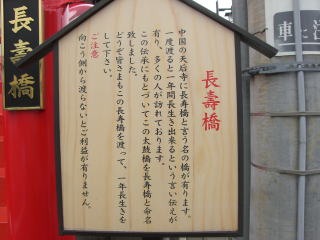 長壽橋
長壽橋
中国の天后寺に長壽橋と言う名の橋が有ります。
一度渡ると一年間長生き出来るという言い伝えが
有り、多くの人が訪れております。
この伝承にもとづいてこの太鼓橋を長壽橋と命名
致しました。
どうぞ皆さまもこの長壽橋を渡って、一年長生きを
して下さい。
ご注意
向こう側から渡らないとご利益が有りません。
車と